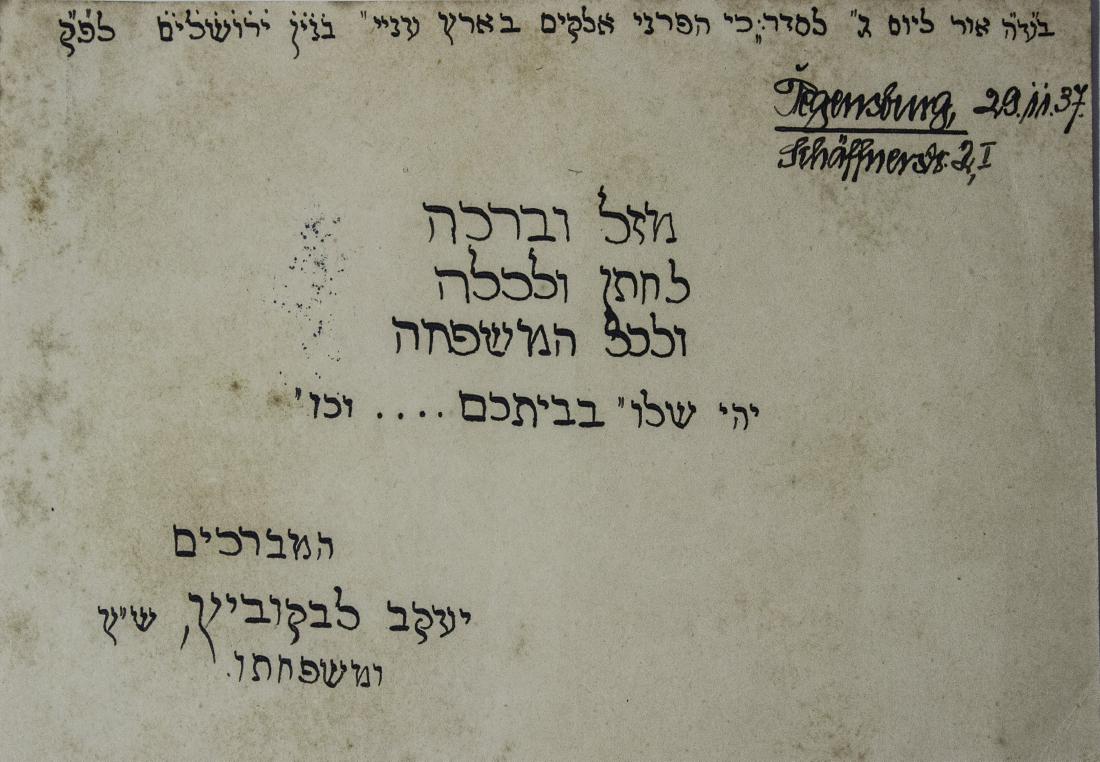 בעזה"י אור ליום ג" לסדר: "כי הפרני אלקים בארץ עניי" בנין ירושלים לפ"ק
Regensburg, 29.11.37.
Schäffnerstr. 2, I
מזל וברכה
לחתן ולכלה
ולכל המשפחה
יהי שלו" בביתכם .... וכו"
המברכים
יעקב לבקוביץ, ש"ץ
ומשפחתו.